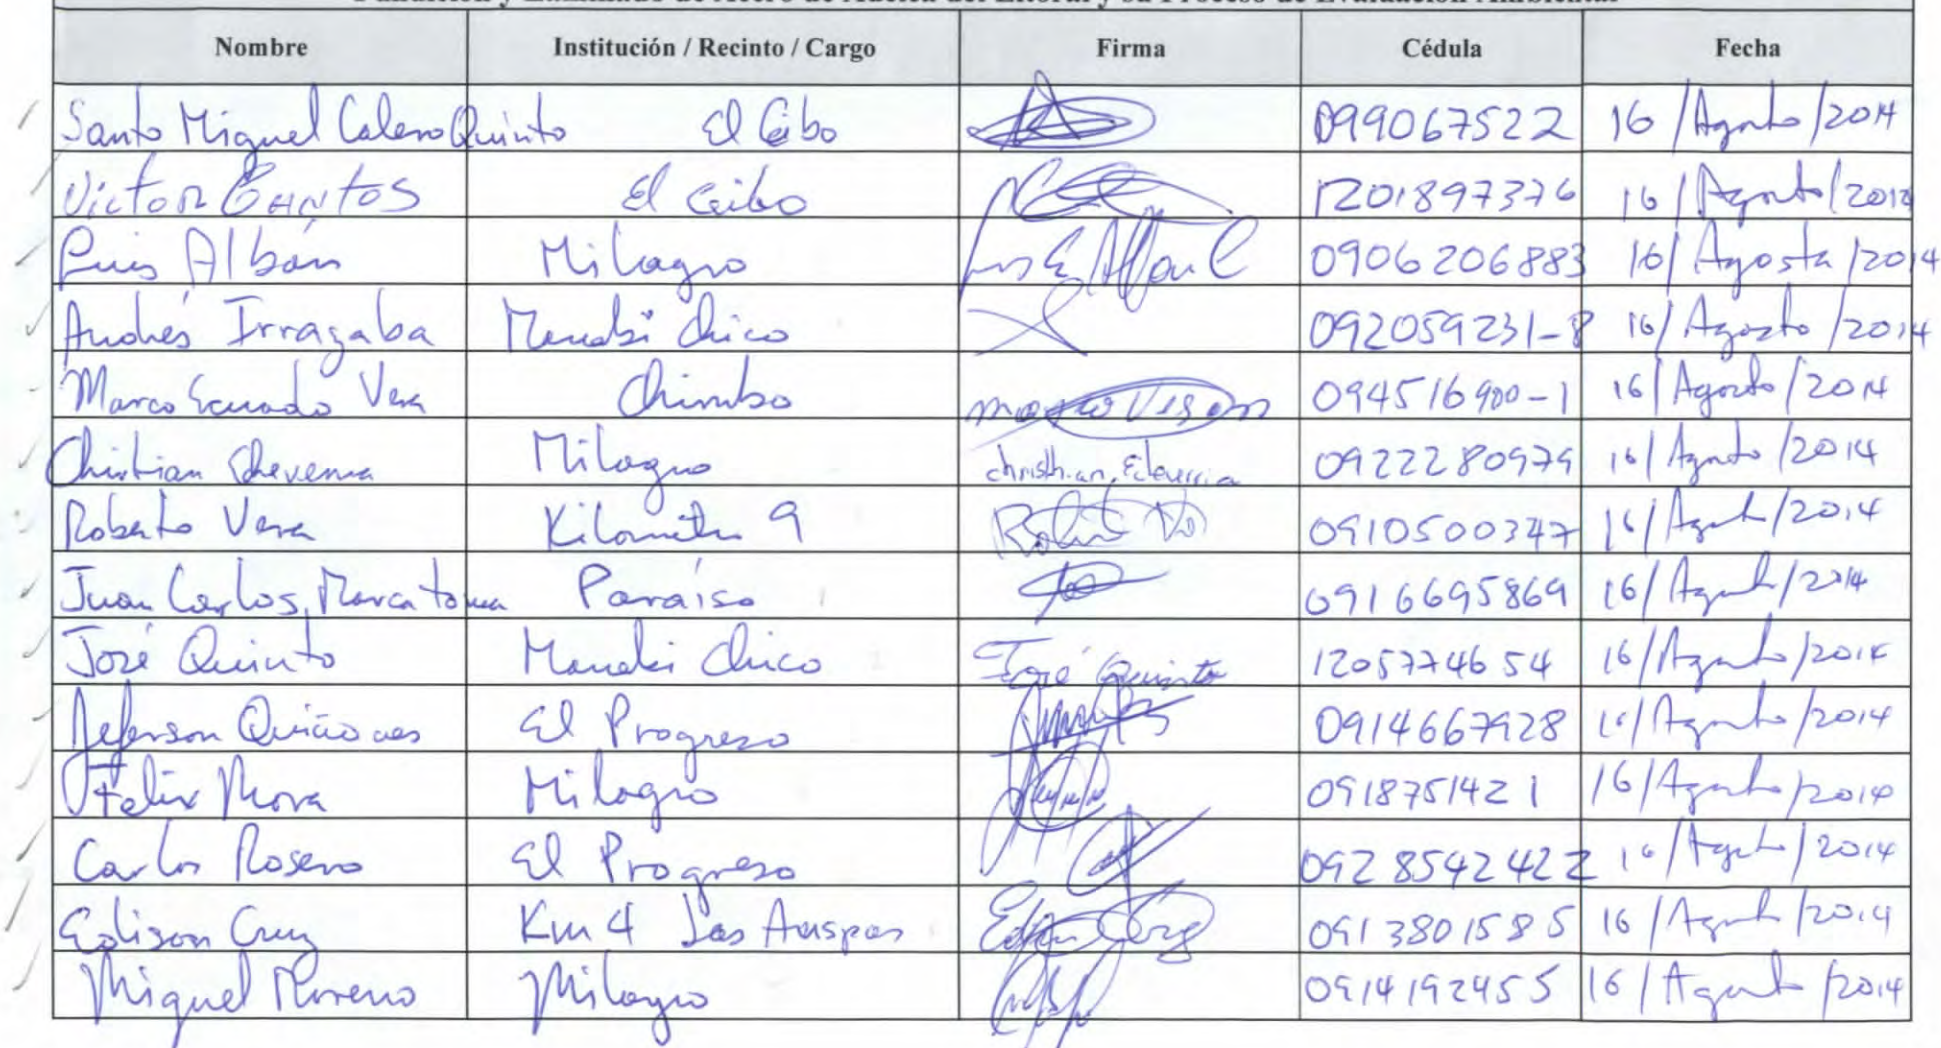 Fundición y Laminado de Acero de Adelca del Litoral y su Proceso de Evaluación Ambiental
Nombre Institución / Recinto / Cargo Firma Cédula Fecha
Santo Miguel Calero Quinto El Ceibo 099067522 16/Agosto/2014
Victor Santos El Ceibo 1201897376 16/Agosto/2014
Luis Albán Milagro 0906206883 16/Agosta/2014
Andrés Irrazaba Manabi Chico 092059231-8 16/Agosto/2014
Marco Vera Chimbo 094516900-1 16/Agosto/2014
Christian Echeverria Milagro christhian, Echeverria 0922280979 16/Agosto/2014
Roberto Vera Kilometro 9 0910500347 16/Agosto/2014
Juan Carlos Marcatoma Paraíso 0916695869 16/Agosto/2014
José Quinto Manabi Chico José Quinto 1205774654 16/Agosto/2014
Jeferson Quiñones El Progreso 0914667928 16/Agosto/2014
Felix Mora Milagro 0918751421 16/Agosto/2014
Carlos Rosero El Progreso 0928542422 16/Agosto/2014
Edison Cruz Km 4 Las 0913801585 16/Agosto/2014
Miguel Moreno Milagro 0914192455 16/Agosto/2014